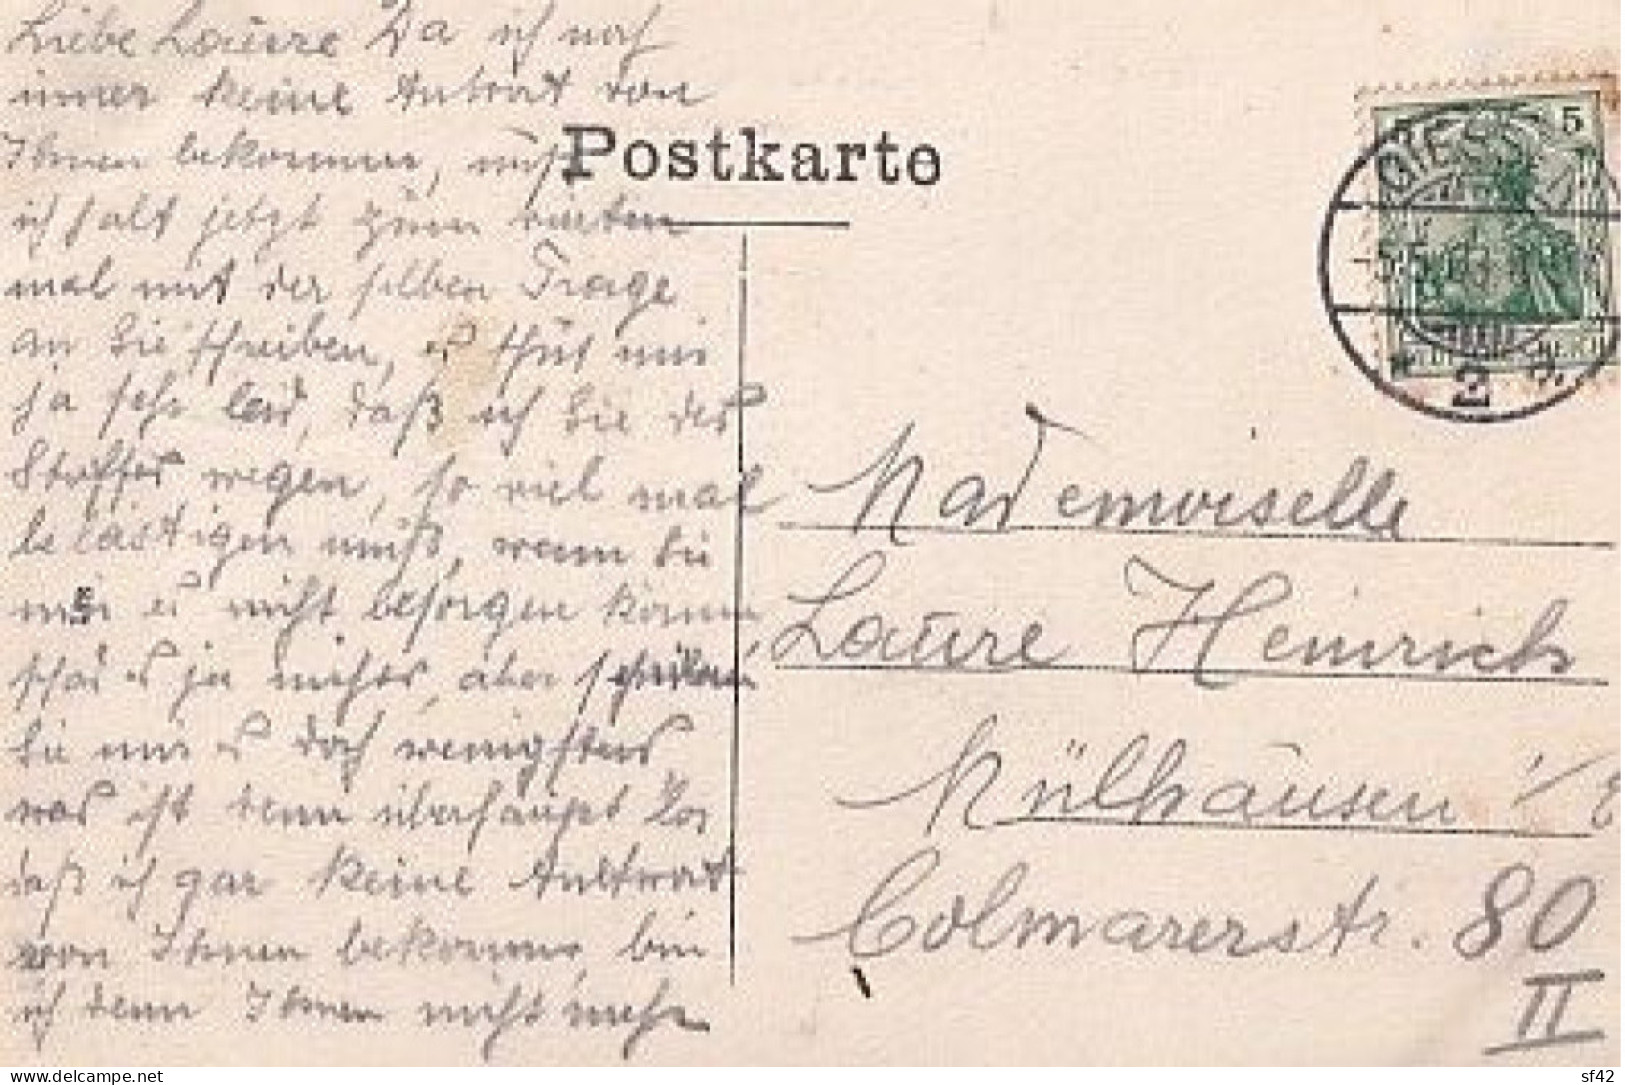 Liebe Laure Da ich noch
imer keine Antwort von
Ihnen bekommen, muß
ich halt jetzt zum
mal mit der selben Frage
an Sie schreiben, es thut mir
ja sehr leid, daß ich Sie des
Stoffes wegen, so viel mal
belästigen muß, wenn Sie
mir es nicht besorgen können,
schad es ja nichts, aber schreiben
Sie mir es doch wenigstens,
was ist denn überhaupt los
daß ich gar keine Antwort
von Ihnen bekomme, bin
ich denn Ihnen nicht mehr
Postkarte
5
GIESSEN
2
Mademoiselle
Laure Heinrich
Mülhausen i/E
Colmarerstr. 80
II
https://www.delcampe.net
sf42